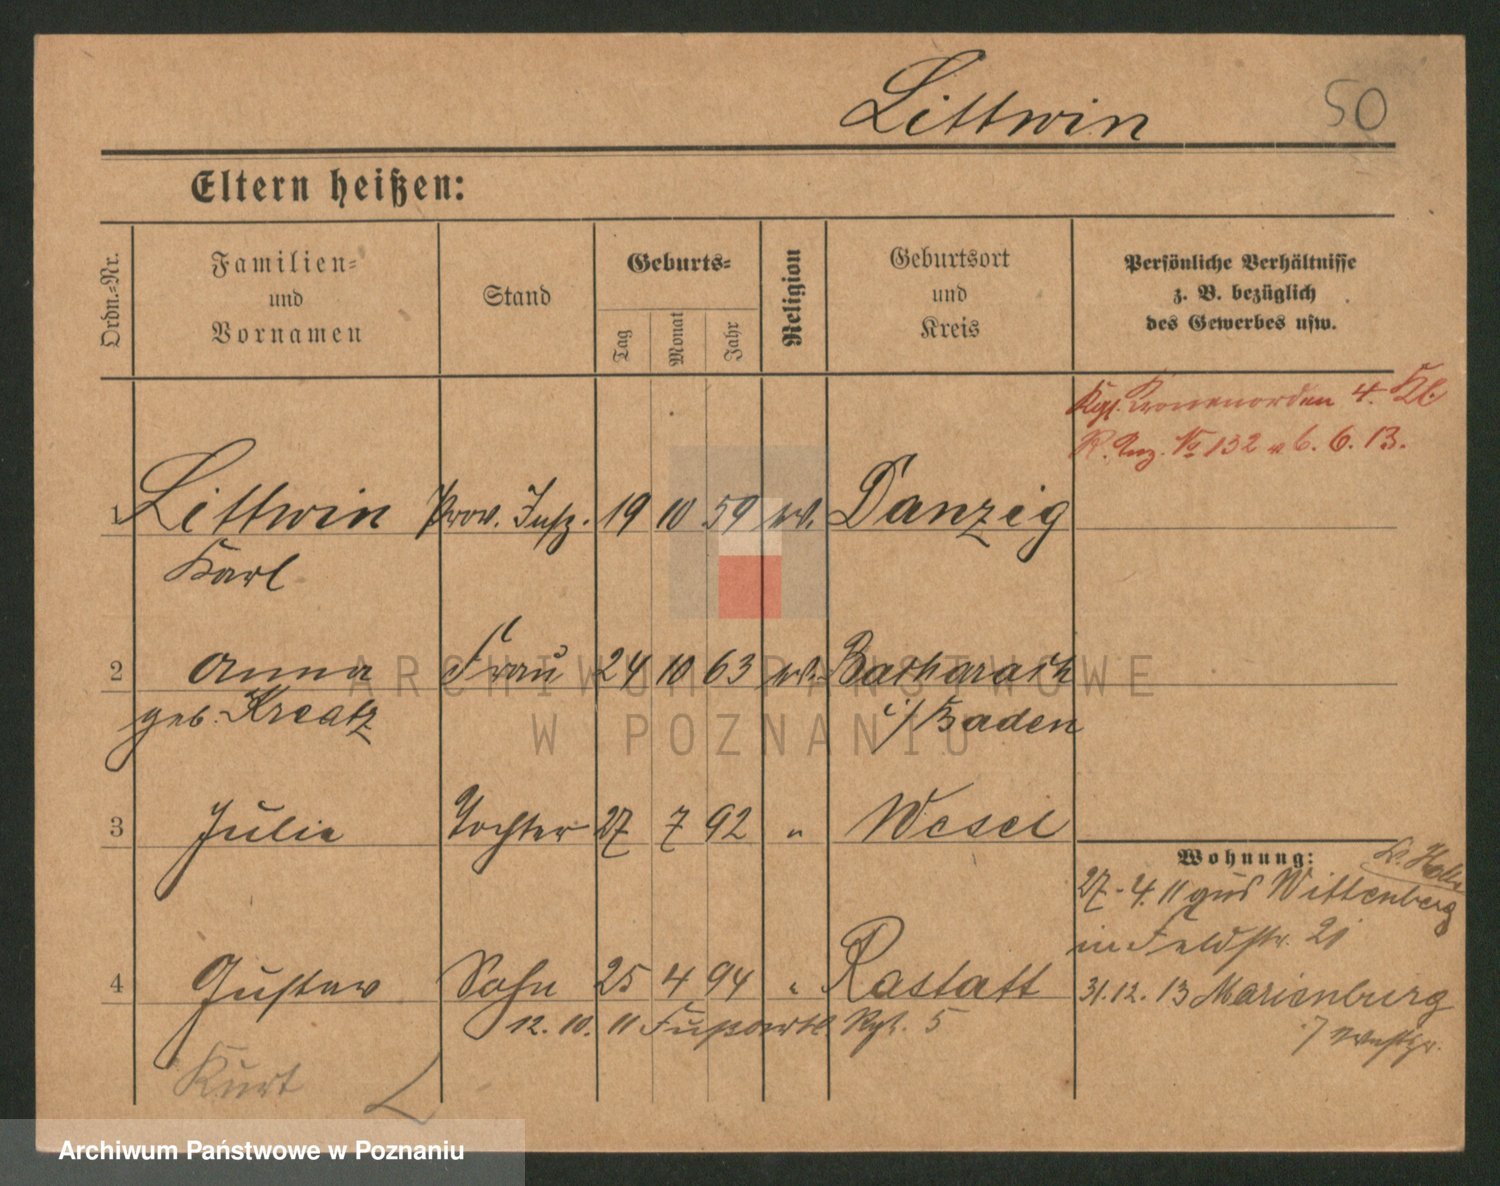 Littwin 50
Eltern heißen:
Ordn.-Nr.
Familien-
und
Vornamen
Stand
Geburts-
Tag Monat Jahr
Religion
Geburtsort
und
Kreis
Persönliche Verhältnisse
z. B. bezüglich
des Gewerbes usw.
Kgl. Kronenorden 4. Kl.
R. Anz. No 132 v 6. 6. 13.
1 Littwin Prov. Insp. 19 10 59 ev. Danzig
Karl
2 Anna Frau 24 10 63 ev. Bacharach
geb. Kreatz i/Baden
3 Julie Tochter 27 7 92 " Wesel
Wohnung:
27.4.11 aus Wittenberg
in Feldstr. 21
4 Gustav Sohn 25 4 94 " Rastatt
31.12.13 Marienburg
12.10.11 Fußartl. Rgt. 5
Westpr.
Kurt
ARCHIWUM PAŃSTWOWE
W POZNANIU
Archiwum Państwowe w Poznaniu